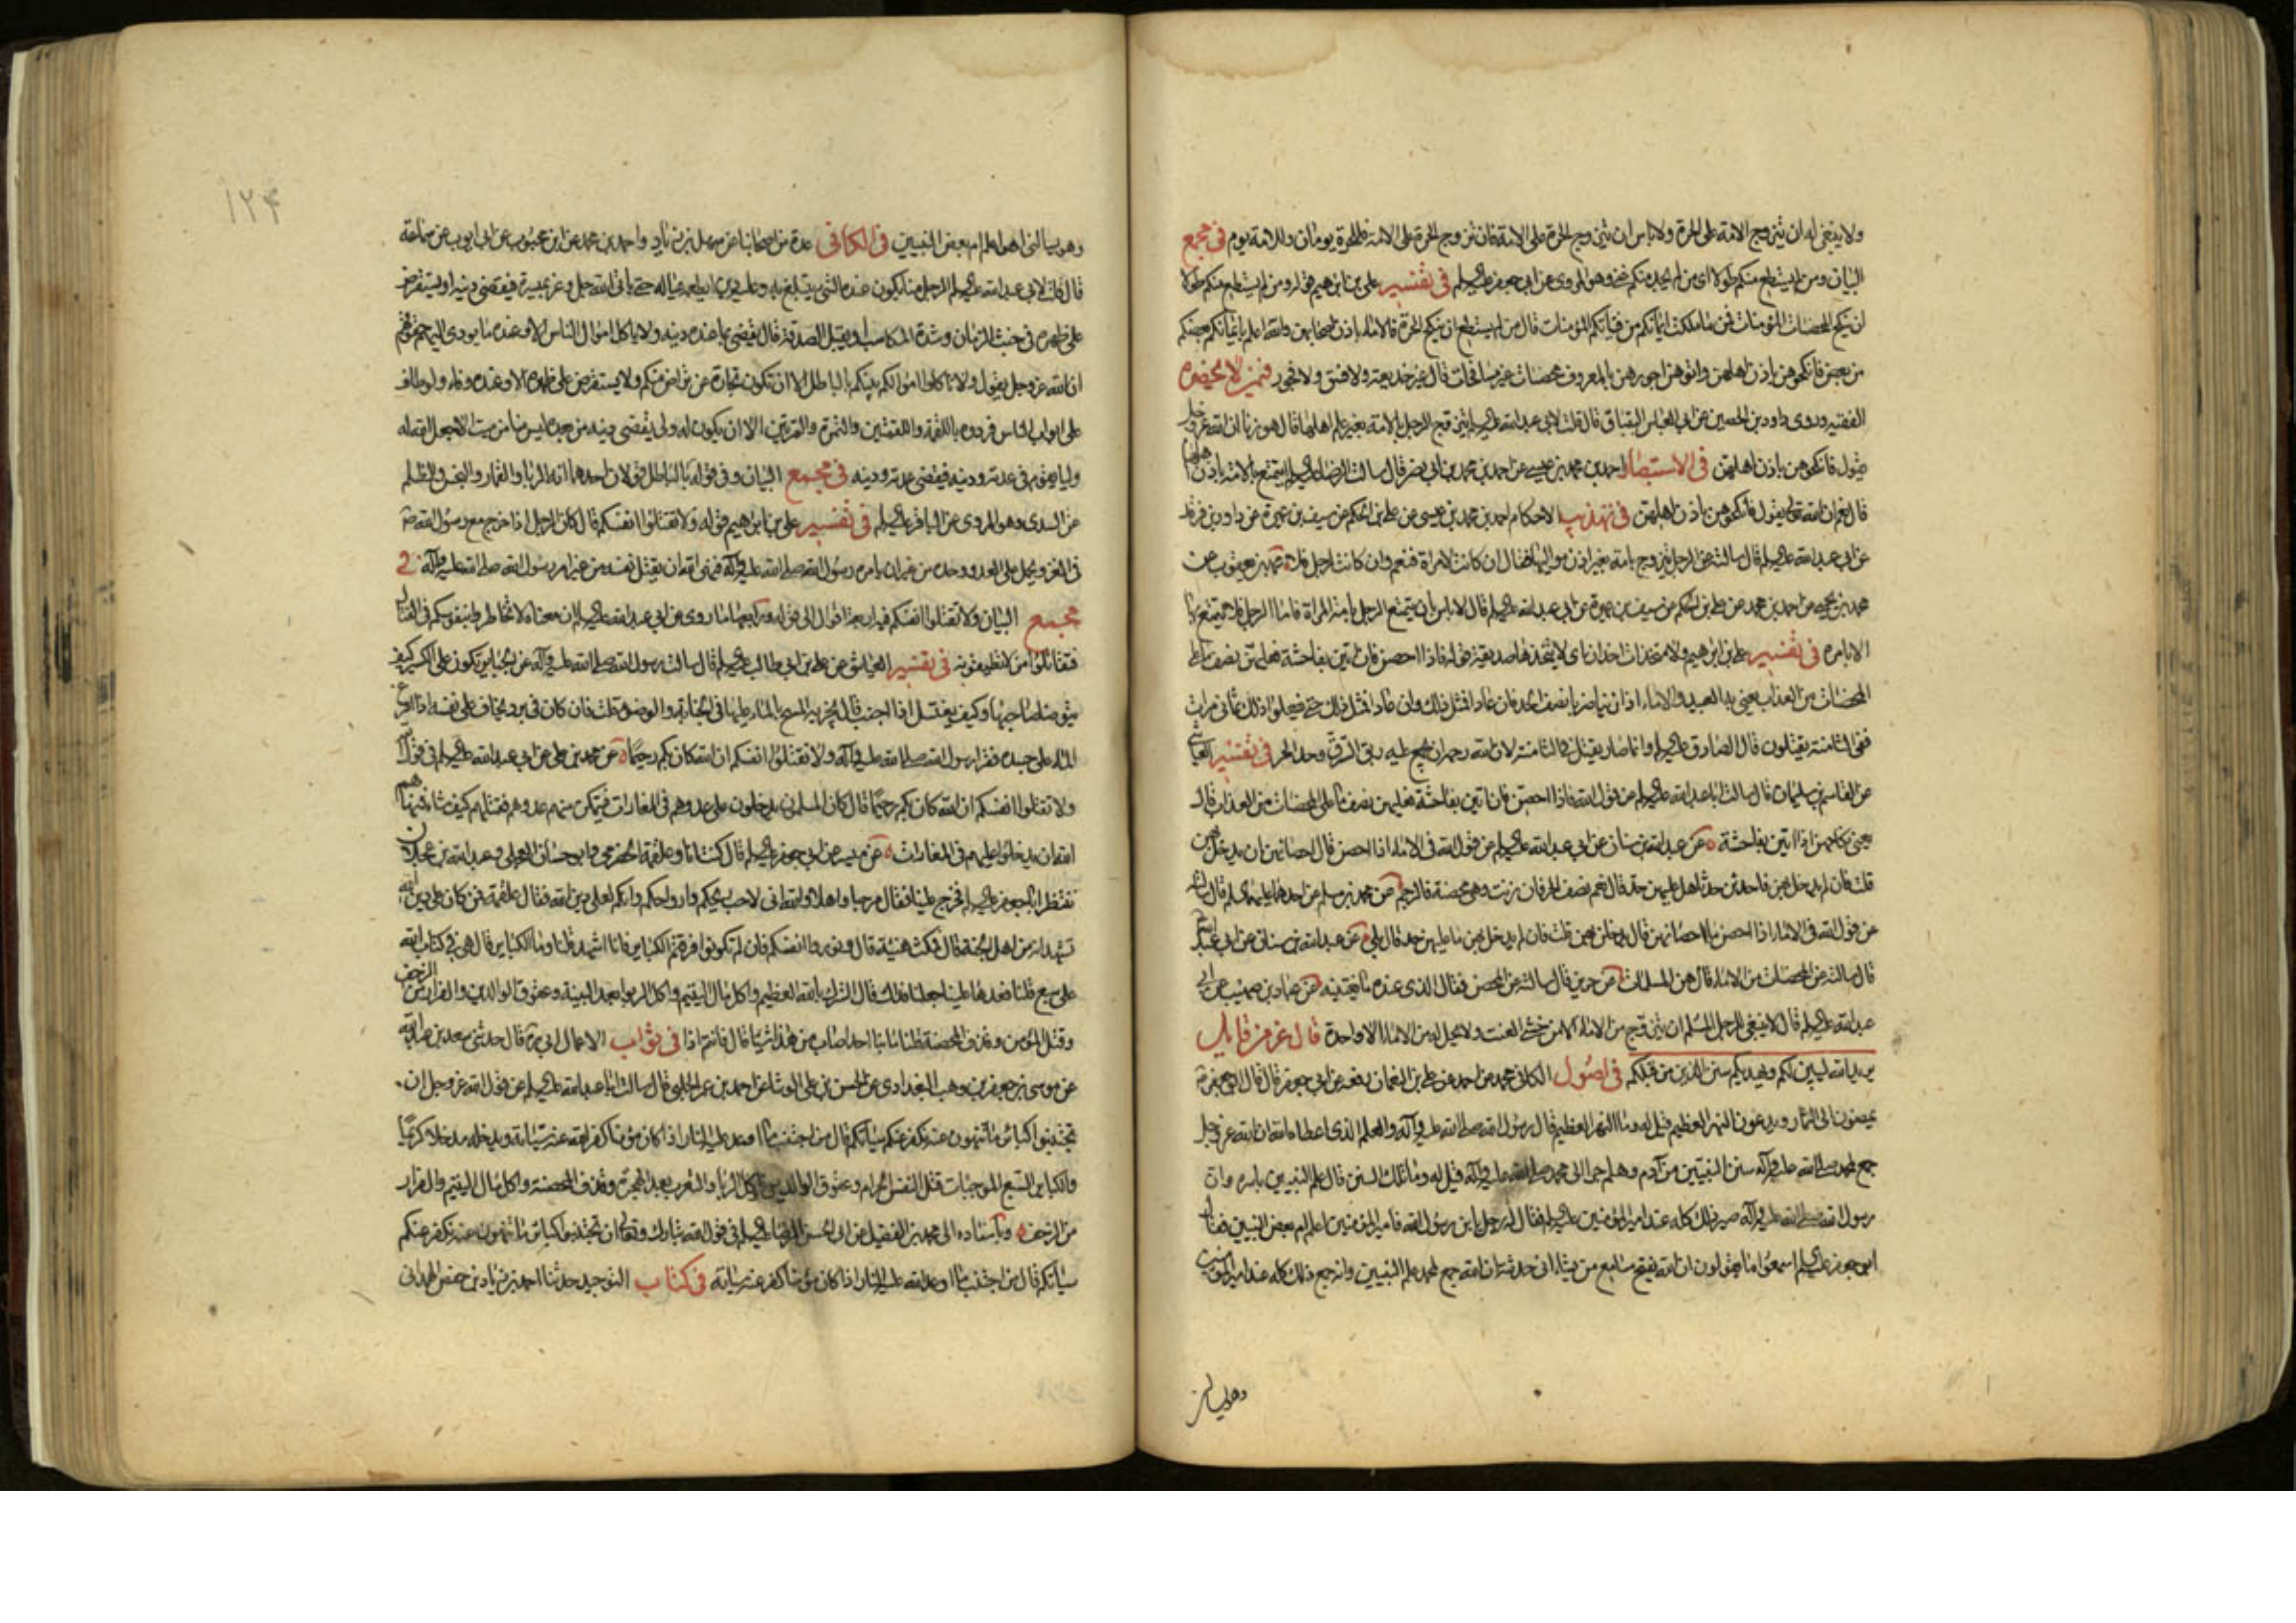 ولا ينبغى له ان يتزوج الامة على الحرة ولا باس ان يتزوج الحرة على الامة فان تزوج الحرة على الامة فللحرة يومان وللامة يوم فى مجمع
البيان ومن لم يستطع منكم طولا اى من لم يجد منكم غنى وهو المروى عن ابى جعفر عليه السلم فى تفسير على بن ابرهيم قوله ومن لم يستطع منكم طولا
ان ينكح المحصنات المؤمنات فمن ما ملكت ايمانكم من فتياتكم المؤمنات قال من لم يستطع ان ينكح الحرة فالاماء باذن اصحابهن والله اعلم بايمانكم بعضكم
من بعض فانكحوهن باذن اهلهن واتوهن اجورهن بالمعروف محصنات غير مسافحات قال غير خديعة ولا فسق ولا فجور فيمن لا يحضره
الفقيه وروى داود بن الحصين عن ابى العباس البقباق قال قلت لابى عبد الله عليه السلم يتزوج الرجل بالامة بغير علم اهلها قال هو زنا ان الله عز وجل
يقول فانكحوهن باذن اهلهن فى الاستبصار احمد بن محمد بن عيسى عن احمد بن محمد بن ابى نصر قال سالت الرضا عليه السلم ايتمتع بالامة باذن اهلها
قال نعم ان الله تعالى يقول فانكحوهن باذن اهلهن فى تهذيب الاحكام احمد بن محمد بن عيسى عن على بن الحكم عن سيف بن عميرة عن داود بن فرقد
عن ابى عبد الله عليه السلم قال سالته عن الرجل يتزوج بامة بغير اذن مواليها فقال ان كانت لامراة فنعم وان كانت لرجل فلا محمد بن يعقوب عن
محمد بن يحيى عن احمد بن محمد عن على بن الحكم عن سيف بن عميرة عن ابى عبد الله عليه السلم قال لا باس ان يتمتع الرجل بامة المراة فاما امة الرجل فلا يتمتع بها
الا بامره فى تفسير على بن ابرهيم ولا متخذات اخدان اى لا يتخذها صديقة قوله فاذا احصن فان اتين بفاحشة فعليهن نصف ما على
المحصنات من العذاب يعنى به العبيد والاماء اذا زنيا ضربا نصف الحد فان عاد فمثل ذلك وان عاد فمثل ذلك حتى فيعلوا ذلك ثمانى مرات
ففى الثامنة يقتلون قال الصادق عليه السلم وانما صار يقتل فى الثامنة لان الله رحمه ان يجمع عليه ربق الرق وحد الحر فى تفسير العياشى
عن القاسم بن سليمان قال سالت ابا عبد الله عليه السلم عن قول الله فاذا احصن فان اتين بفاحشة فعليهن نصف ما على المحصنات من العذاب قال
يعنى نكاحهن اذا اتين بفاحشة عن عبد الله بن سنان عن ابى عبد الله عليه السلم عن قول الله فى الاماء اذا احصن قال احصانهن ان يدخل بهن
قلت فان لم يدخل بهن فاحدثن حدثا هل عليهن حد قال نعم نصف الحد فان زنت وهى محصنة فالرجم عن محمد بن مسلم عن احدهما عليهما السلم قال سالته
عن قول الله فى الاماء اذا احصن ما احصانهن قال يدخل بهن قلت فان لم يدخل بهن ما عليهن حد قال بلى عن عبد الله بن سنان عن ابى عبد الله
قال سالته عن المحصنات من الاماء قال هن المسلمات عن حريز قال سالته عن المحصن فقال الذى عنده ما يغنيه عن عباد بن صهيب عن ابى
عبد الله عليه السلم قال لا ينبغى للرجل المسلم ان يتزوج من الاماء الا من خشى العنت ولا يحل له من الاماء الا واحدة قال عز من قائل
يريد الله ليبين لكم ويهديكم سنن الذين من قبلكم فى اصول الكافى محمد عن احمد عن على بن النعمان رفعه عن ابى جعفر قال قال ابو جعفر
يمصون الى الثمار ويدعون النهر العظيم قيل له وما النهر العظيم قال رسول الله صلى الله عليه وآله والعلم الذى اعطاه الله ان الله عز وجل
جمع لمحمد صلى الله عليه وآله سنن النبيين من آدم وهلم جرا الى محمد صلى الله عليه وآله قيل له وما تلك السنن قال علم النبيين باسره وان
رسول الله صلى الله عليه وآله صير ذلك كله عند امير المؤمنين عليه السلم فقال له رجل يا بن رسول الله فامير المؤمنين اعلم ام بعض النبيين فقال
ابو جعفر عليه السلم اسمعوا ما يقول ان الله يفتح مسامع من يشاء انى حدثته ان الله جمع لمحمد علم النبيين وانه جمع ذلك كله عند امير المؤمنين
وهو يسالنى
۱۲۴
وهو يسالنى اهو اعلم ام بعض النبيين فى الكافى عدة من اصحابنا عن سهل بن زياد واحمد بن محمد عن ابن محبوب عن ابى ايوب عن سماعة
قال قلت لابى عبد الله عليه السلم الرجل منا يكون عنده الشى يتبلغ به وعليه دين ايطعمه عياله حتى ياتى الله جل وعز بميسرة فيقضى دينه او يستقرض
على ظهره فى خبث الزمان وشدة المكاسب او يقبل الصدقة قال يقضى بما عنده دينه ولا ياكل اموال الناس الا وعنده ما يودى اليهم حقوقهم
ان الله عز وجل يقول ولا تاكلوا اموالكم بينكم بالباطل الا ان تكون تجارة عن تراض منكم ولا يستقرض على ظهره الا وعنده وفاء ولو طاف
على ابواب الناس فردوه باللقمة واللقمتين والتمرة والتمرتين الا ان يكون له ولى يقضى دينه من بعده ليس منا من ميت الا جعل الله له
وليا يقوم فى عدته ودينه فيقضى عدته ودينه فى مجمع البيان وفى قوله بالباطل قولان احدهما انه الربا والقمار والبخس والظلم
عن السدى وهو المروى عن الباقر عليه السلم فى تفسير على بن ابرهيم قوله ولا تقتلوا انفسكم قال كان الرجل اذا خرج مع رسول الله ص
فى الغزو يحمل على العدو وحده من غير ان يامره رسول الله صلى الله عليه وآله فنهى الله ان يقتل نفسه من غير امر رسول الله صلى الله عليه وآله فى
مجمع البيان ولا تقتلوا انفسكم فيه اربعة اقوال الى قوله ورابعها ما روى عن ابى عبد الله عليه السلم ان معناه لا تخاطروا بنفوسكم فى القتال
فتقاتلوا من لا تطيقونه فى تفسير العياشى عن على بن ابى طالب عليه السلم قال سالت رسول الله صلى الله عليه وآله عن الجبائر تكون على الكسير كيف
يتوضا صاحبها وكيف يغتسل اذا اجنب قال يجزيه المسح بالماء عليها فى الجنابة والوضوء قلت فان كان فى برد يخاف على نفسه اذا افرغ
الماء على جسده فقرا رسول الله صلى الله عليه وآله ولا تقتلوا انفسكم ان الله كان بكم رحيما عن محمد بن على عن ابى عبد الله عليه السلم فى قول الله
ولا تقتلوا انفسكم ان الله كان بكم رحيما قال كان المسلمون يدخلون على عدوهم فى المغارات فيتمكن منهم عدوهم فقتلهم كيف شاء فنهاهم
الله ان يدخلوا عليهم فى المغارات عن ميسر عن ابى جعفر عليه السلم قال كنت انا وعلقمة الحضرمى وابو حسان العجلى وعبد الله بن عجلان
ننتظر ابا جعفر عليه السلم فخرج علينا فقال مرحبا واهلا والله انى لاحب ريحكم وارواحكم وانكم لعلى دين الله فقال علقمة فمن كان على دين الله
تشهد انه من اهل الجنة قال فمكث هنيئة قال ونوروا انفسكم فان لم تكونوا اقرفتم الكبائر فانا اشهد قلنا وما الكبائر قال هى فى كتاب الله
على سبع قلنا فعدها علينا جعلنا فداك قال الشرك بالله العظيم واكل مال اليتيم واكل الربوا بعد البينة وعقوق الوالدين والفرار من الزحف
وقتل المؤمن وقذف المحصنة قلنا ما منا احد اصاب من هذه شيئا قال فانتم اذا فى ثواب الاعمال ابى ره قال حدثنى سعد بن عبد الله
عن موسى بن جعفر بن وهب البغدادى عن الحسن بن على الوشا عن احمد بن عمر الحلبى قال سالت ابا عبد الله عليه السلم عن قول الله عز وجل ان
تجتنبوا كبائر ما تنهون عنه نكفر عنكم سيئاتكم قال من اجتنب ما اوعد الله عليه النار اذا كان مؤمنا كفر الله عنه سيئاته ويدخله مدخلا كريما
والكبائر السبع الموجبات قتل النفس الحرام وعقوق الوالدين واكل الربا والتعرب بعد الهجرة وقذف المحصنة واكل مال اليتيم والفرار
من الزحف وباسناده الى محمد بن الفضيل عن ابى الحسن الرضا عليه السلم فى قول الله تبارك وتعالى ان تجتنبوا كبائر ما تنهون عنه نكفر عنكم
سيئاتكم قال من اجتنب ما اوعد الله عليه النار اذا كان مؤمنا كفر عنه سيئاته فى كتاب التوحيد حدثنا احمد بن زياد بن جعفر الهمدانى